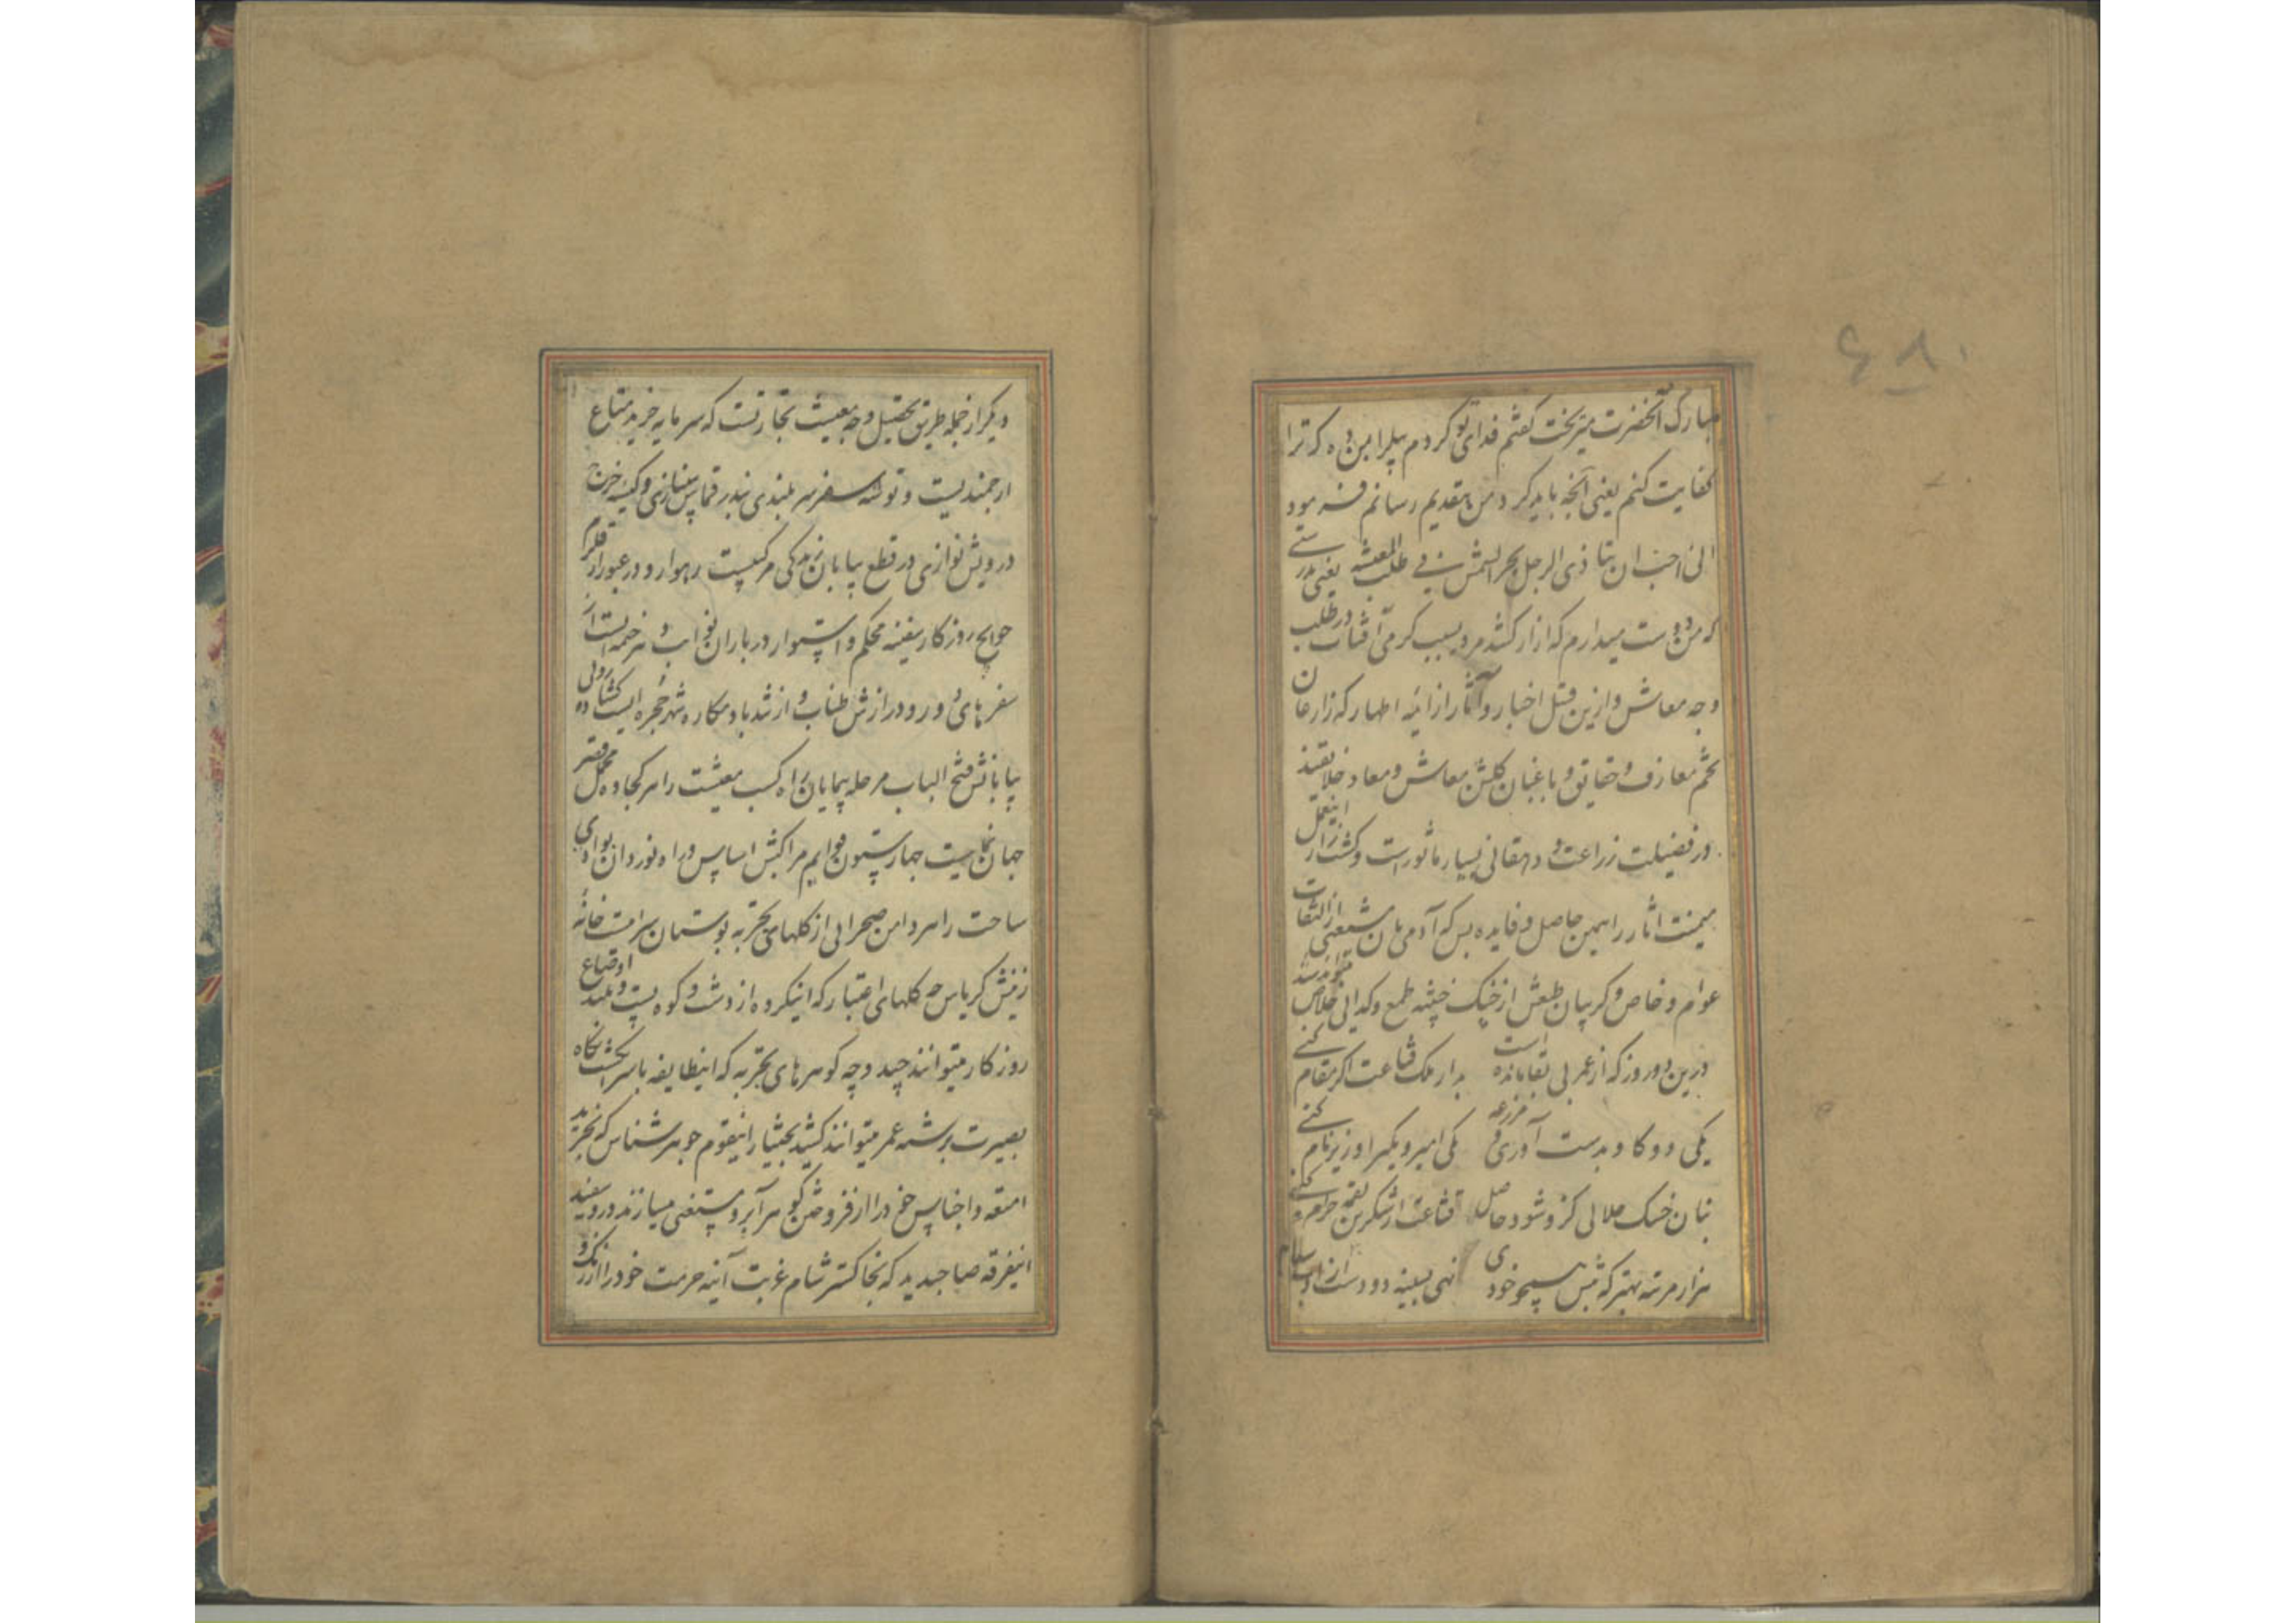 مبارک آنحضرت میریخت گفتم فدای تو کردم بیلرا بمن ده که ترا
کفایت کنم یعنی آنچه باید کرد من بتقدیم رسانم فرمود
انی احب ان یتاذی الرجل بحر الشمس فی طلب المعیشه یعنی بدرستی
که من دوست میدارم که ازار کشد مرد بسبب کرمی آفتاب در طلب
وجه معاش و ازین قبل اخبار و آثار از ائمه اطهار که زارعان
تخم معارف و حقایق و باغبان کلشن معاش و معاد خلایقند
در فضیلت زراعت و دهقانی بسیار ماثور است و کشتزار اینعمل
میمنت اثار را همین حاصل و فایده بس که آدمی بان مستغنی از التفات
عوام و خاص و کریبان طبعش از چنک طمع و کدایی خلاص میتواند شد
درین دو روز که از عمر بی بقا مانده است بدار ملک قناعت اکر مقام کنی
یکی دو کاو بدست آوری و مزرعه یکی امیر و یکیرا وزیر نام کنی
بنان خشک حلالی کزو شود حاصل قناعت از شکرین لقمه حرام کنی
هزار مرتبه بهتر که پیش همچو خودی نهی بسینه دو دست از ادب سلام
۶۸۰
دیکر از جمله طریق تحصیل وجه معیشت تجارتست که سرمایه خرید متاع
ارجمندیست و توشه سفر سربلندی بندر قماش بی نیازی و کیسه خرج
درویش نوازی در قطع بیابان زندکی مرکبیست رهوار و در عبور از قلزم
حوایج روزکار سفینه محکم و استوار در باران نوایب و خیمه ایست از
سفرهای دور و درازش طناب و از تند باد مکاره شهر حجره ایست کشاده روی
بیابانش فتح الباب مرحله پیمایان راه کسب معیشت را سر کجاوه محمل فقر
جهان نماییست چهار ستون قوایم مراکبش اساس و راه نوردان بوادی
ساحت را سر دامن صحرایی از کلهای تجربه بوستان سرامت خانه
زینش کرباس چه کلهای اعتبار که اینکروه از دشت و کوه پست و بلند اوضاع
روزکار میتوانند چید و چه کوهرهای تجربه که اینطایفه با سرانکشت نکاه
بصیرت برشته عمر میتوانند کشید بختیار اینقوم جوهر شناس که بخرید
امتعه و اجناس خود را از فروختن کوهر آبرو مستغنی میسازند و روسفید
اینفرقه صبا جدید که بخاکستر شام غربت آینه حرمت خود را از زنک